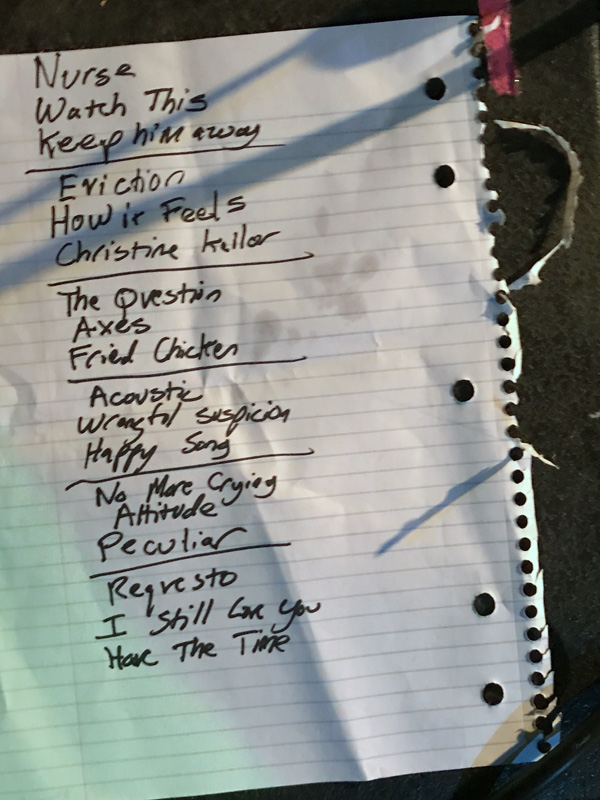 Nurse
Watch This
Keep him away
Eviction
How it Feels
Christine Keller
The Question
Axes
Fried Chicken
Acoustic
Wrongful suspicion
Happy Song
No More Crying
Attitude
Peculiar
Regresto
I Still Love You
Have The Time